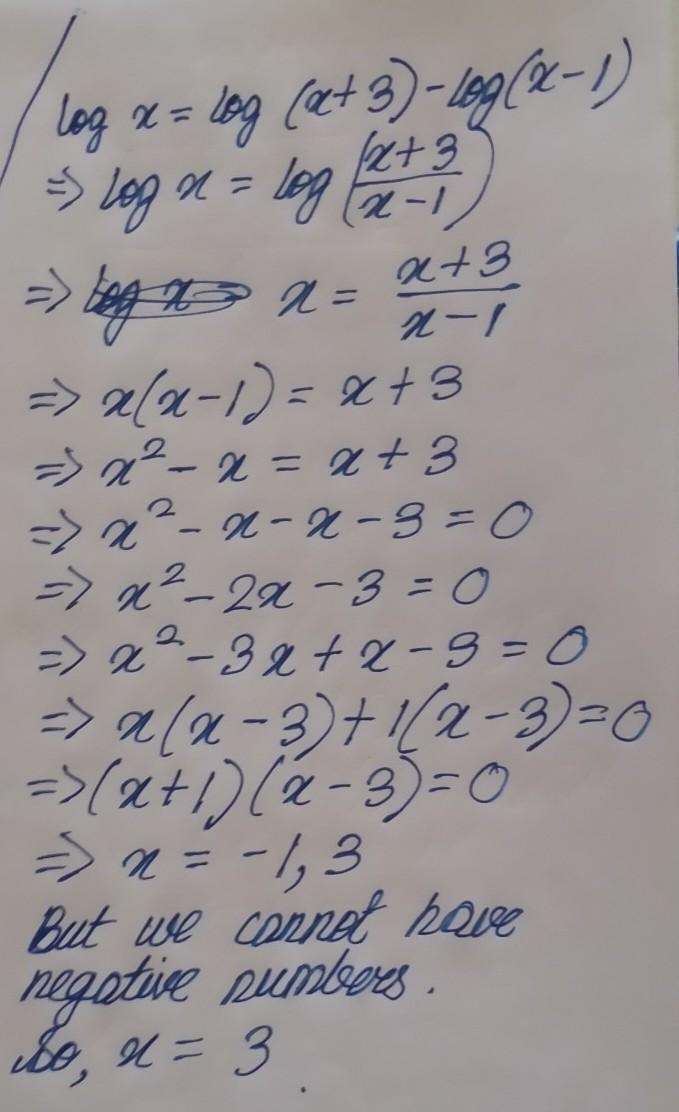 log x = log (x+3) - log(x-1)
=> log x = log (x+3/x-1)
=> x = x+3/x-1
=> x(x-1) = x+3
=> x² - x = x + 3
=> x² - x - x - 3 = 0
=> x² - 2x - 3 = 0
=> x² - 3x + x - 3 = 0
=> x(x-3)+1(x-3)=0
=>(x+1)(x-3)=0
=> x = -1, 3
But we cannot have
negative numbers.
So, x = 3